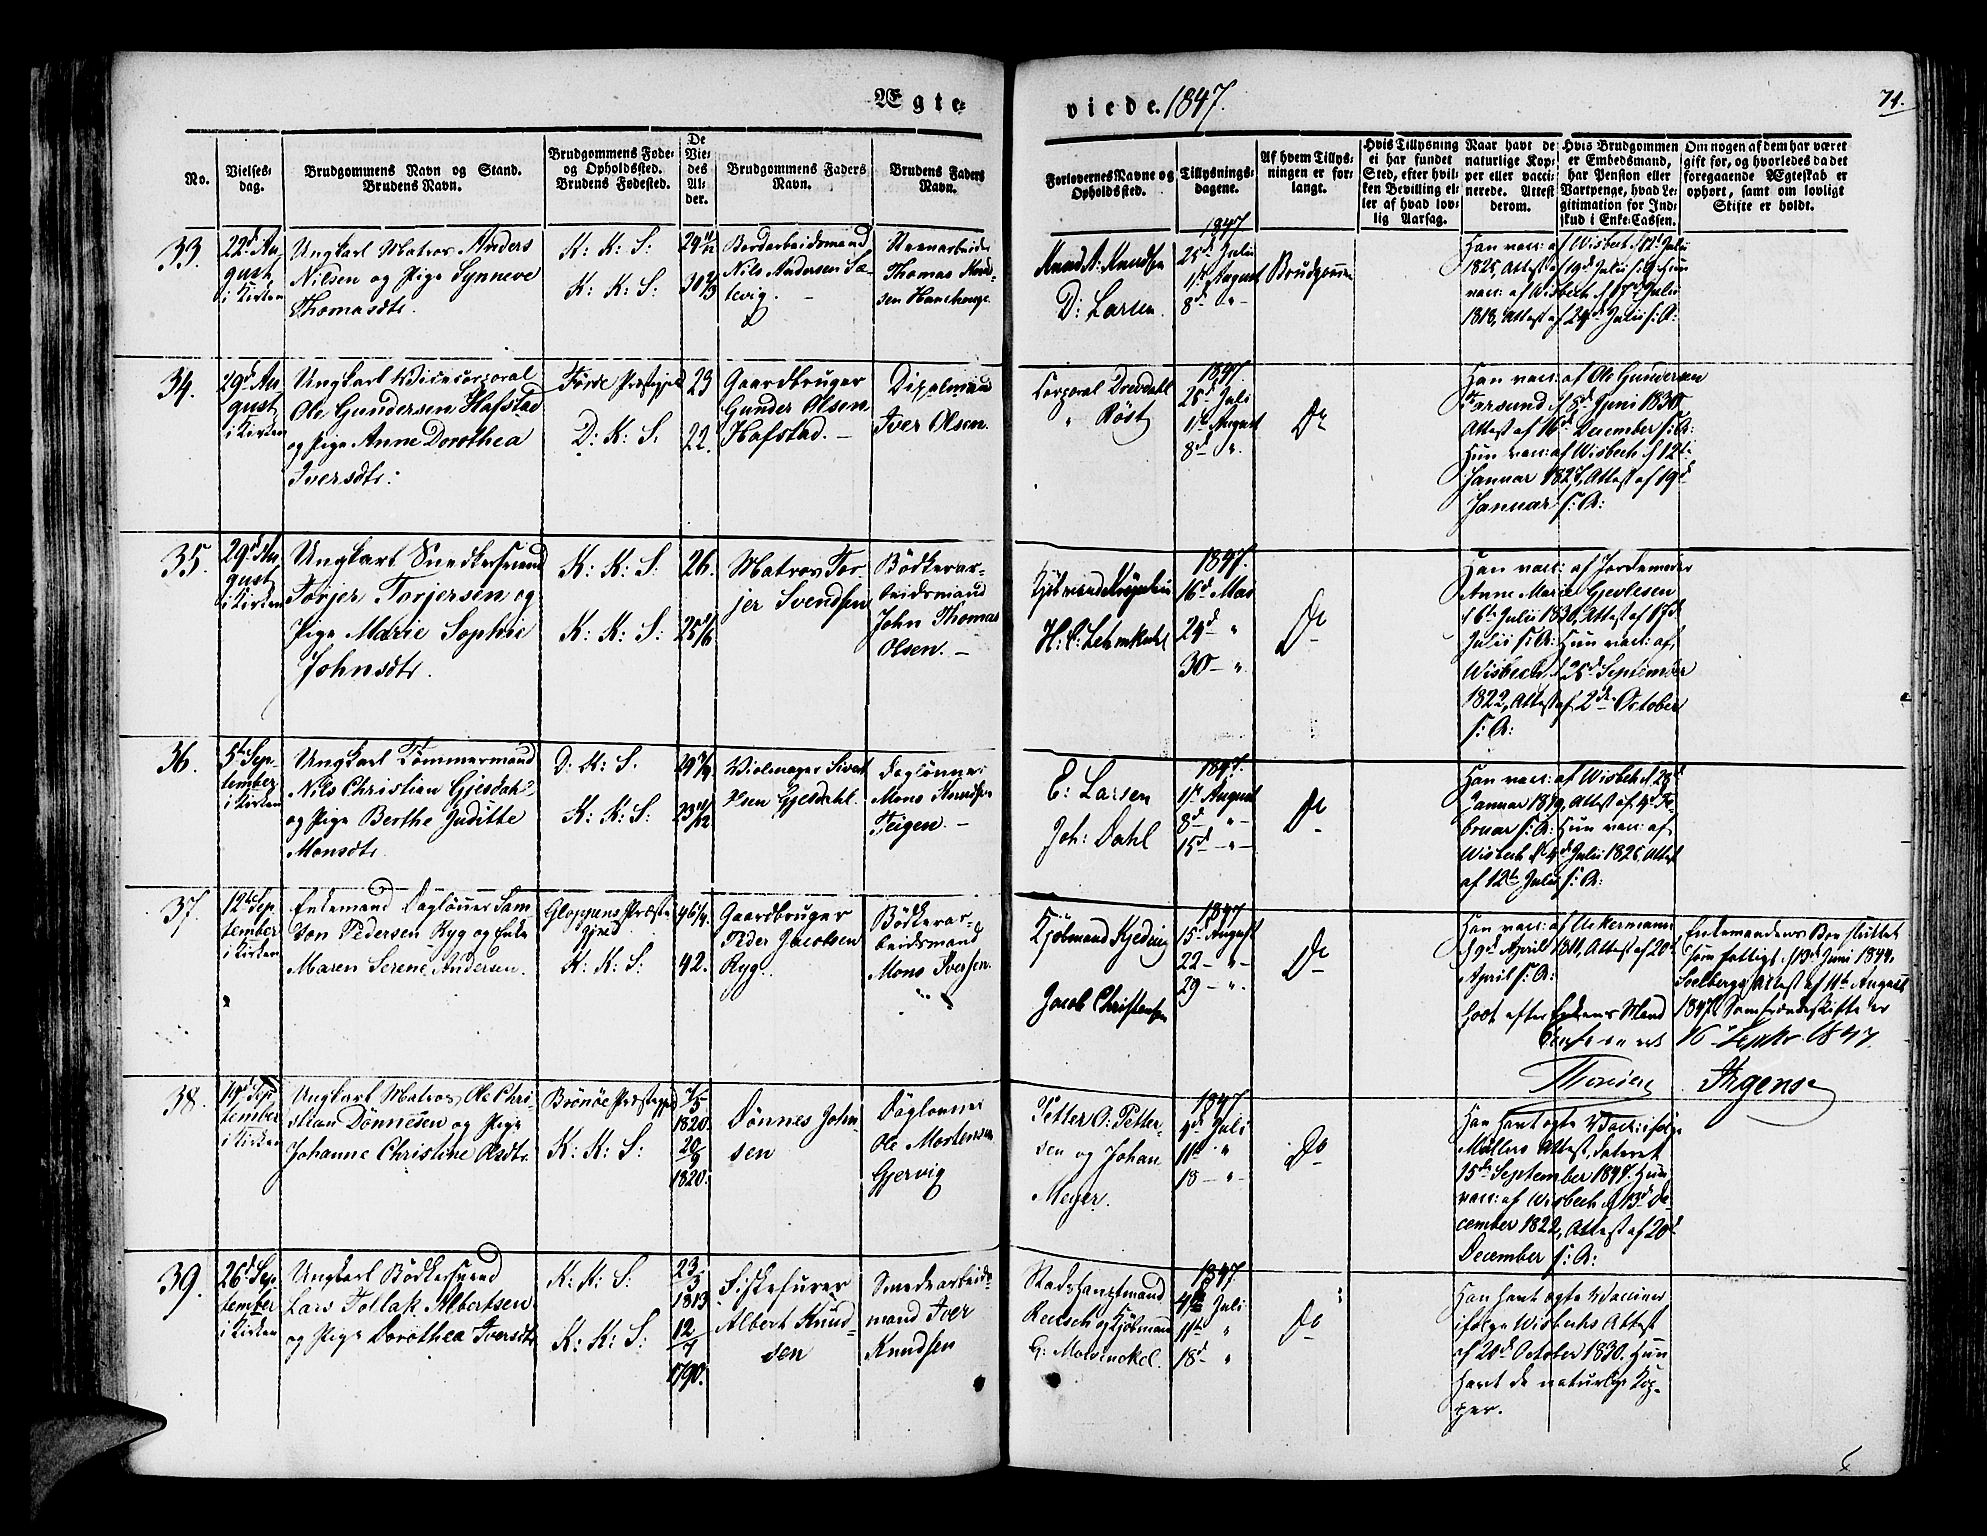 Ægte
viede. 1847.
71.
No.
Vielses-
dag.
Brudgommens Navn og Stand.
Brudens Navn.
Brudgommens Føde-
og Opholdssted.
Brudens Fødested.
De
Vie-
des
Al-
der.
Brudgommens Faders
Navn.
Brudens Faders
Navn.
Forlovernes Navne og
Opholdssted.
Tillysnings-
dagene.
Af hvem Tillys-
ningen er for-
langt.
Hvis Tillysning
ei har fundet
Sted, efter hvil-
ken Bevilling el-
ler af hvad lov-
lig Aarsag.
Naar havt de
naturlige Kop-
per eller vacci-
nerede. Attest
derom.
Hvis Brudgommen
er Embedsmand,
har Pension eller
Vartpenge, hvad Le-
gitimation for Ind-
skud i Enke-Cassen.
Om nogen af dem har været
gift for, og hvorledes da det
foregaaende Ægteskab er
ophørt, samt om lovligt
Skifte er holdt.
33.
22d Au
gust
i Kirken
Ungkarl Matros Anders
Nilsen og Pige Synneve
Thomasdtr.
K: K: S:
K: K: S:
29 11/12
30 2/3
Bordarbeidsmand
Nils Andersen Sæ-
levig. –
Thomas Knud-
sen
Knud A: Knudsen
D: Larsen
1847
25d Juli
1ste August
8d "
Brudgommen
Han vacc: af Wisbech d 11t Julii
1825, Attest af 19d Julii s: A: Hun
vacc: af Wisbech d 17d Julii
1818, Attest af 24d Julii s: A:
34.
29d Au
gust
i Kirken
Ungkarl Vicecorporal
Ole Gundersen Hafstad
og Pige Anne Dorothea
Iversdtr.
Førde Præstegjeld
D: K: S.
23
22.
Gaardbruger
Gunder Olsen
Hafstad. –
Iver Olsen.
Corporal Drevdahl
" Röst
1847
25d Juli
1ste August
8d "
Do
Han vacc: af Ole Gundersen
d 5d Juni 1830
Attest af 16d December s: A:
Hun vacc: af Wisbech d 12t
Januar 1827, Attest af 19d
Januar s: A:
35.
29d Au
gust
i Kirken
Ungkarl Snedkersvend
Torjer Torjersen og
Pige Marie Sophie
Johnsdtr.
K: K: S:
K: K: S:
26.
25 1/6
Matros Tor-
jer Svendsen
Bödkerar-
beidsmand
John Thomas
Olsen. –
H: C: Lehmkuhl
1847.
16d Mai
24d "
30 – "
Do
Han vacc: af Jordemoder
Anne Marie Gjevlesen
d 6te Julii 1830, Attest af 17d
Julii s: A: Hun vacc: af
Wisbech d 25d September
1822, Attest af 2den October
s: A:
36.
5te Sep-
tember
i Kirken
Ungkarl Tömmermand
Nils Christian Gjesdahl
og Pige Berthe Juditte
Monsdtr.
D: K: S.
K: K: S:
23 11/12
Gjesdahl.
Daglönner
Mons Knudsen
Teigen. –
E: Larsen
Joh: Dahl
1847.
1ste August
8d – " –
15d – " –
Do
Han vacc: af Wisbech d 29d
Januar 1819, Attest af 4d Fe-
bruar s: A: Hun vacc: af
Wisbech d 4d Julii 1825, Attest
af 12te Julii s: A:
37.
12te Sep
tember
i Kirken
Enkemand Daglönner Sam
son Pedersen Ryg og Enke
Maren Serene Andersen.
Gloppens Præste
gjeld
K: K: S:
46 1/4.
42.
Gaardbruger
Peder Jacobsen
Ryg.
Bödkerar-
beidsmand
Mons Iversen.
Kjöbmand Kjeding
Jacob Christensen
1847
15d August
22 – " –
29 – ".
Do
Han vacc: af Uckermann
d 9d April 1811, Attest af 20d
April s: A:
Enkemandens Boe sluttet
som fattigt d 13d Juni 1844,
Attest af 11te August
1847.
efter Enkens Mand
16 Septbr. 1847.
38.
19d Sep
tember
i Kirken
Ungkarl Matros Ole Chri-
stian Dönnesen og Pige
Johanne Christine Olsdtr.
Brönöe Præstegjeld
K: K: S:
7/5
1820.
20/9
1820.
Dönnes John-
sen
Daglönner
Ole Mortensen
Gjervig
Petter O: Petter-
sen og Johan
Meyer.
1847
4d Juli
11te "
18 – " –
Do
Han havt ægte Vacc: ifölge
Müllers Attest, dateret
15de September 1847. Hun
vacc: af Wisbech d 13d De-
cember 1822, Attest af 20d
December s: A:
39.
26d Sep
tember
i Kirken
Ungkarl Bödkersvend
Lars Tollak Albertsen
og Pige Dorothea Iversdtr
K: K: S:
K: K: S:
23/3
1813
12/7
1790.
Fiskeförer
Albert Knud-
sen
Smedearbeids-
mand Iver
Knudsen
Stadshauptmand
Reusch og Kjöbmand
G: Mowinckel.
1847
4de Juli
11te "
18d – "
Do
Han havt ægte Vaciner
ifölge Wisbechs Attest
af 20d October 1830. Hun
havt de naturlige Kop-
per.